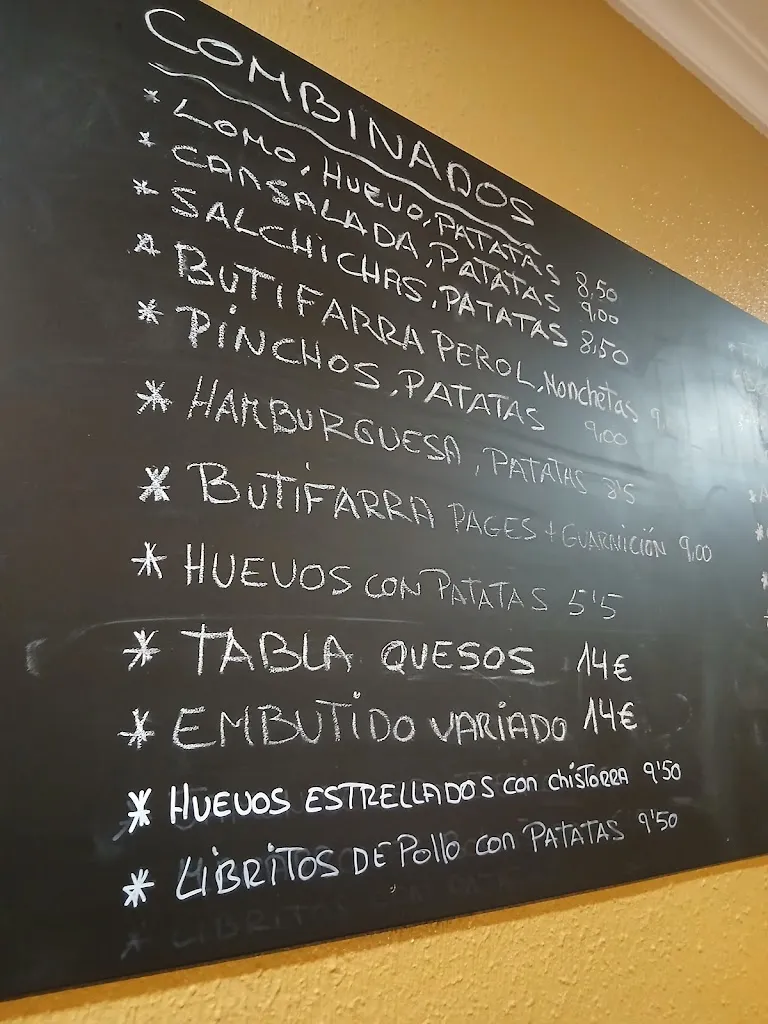 COMBINADOS
* LOMO, HUEVO, PATATAS 8,50
* CANSALADA, PATATAS 9,00
* SALCHICHAS, PATATAS 8,50
* BUTIFARRA PEROL, MONCHETAS 9,
* PINCHOS, PATATAS 9,00
* HAMBURGUESA, PATATAS 8'5
* BUTIFARRA PAGES + GUARNICIÓN 9,00
* HUEVOS CON PATATAS 5'5
* TABLA QUESOS 14€
* EMBUTIDO VARIADO 14€
* HUEVOS ESTRELLADOS con chistorra 9'50
* LIBRITOS DE Pollo con PATATAS 9'50